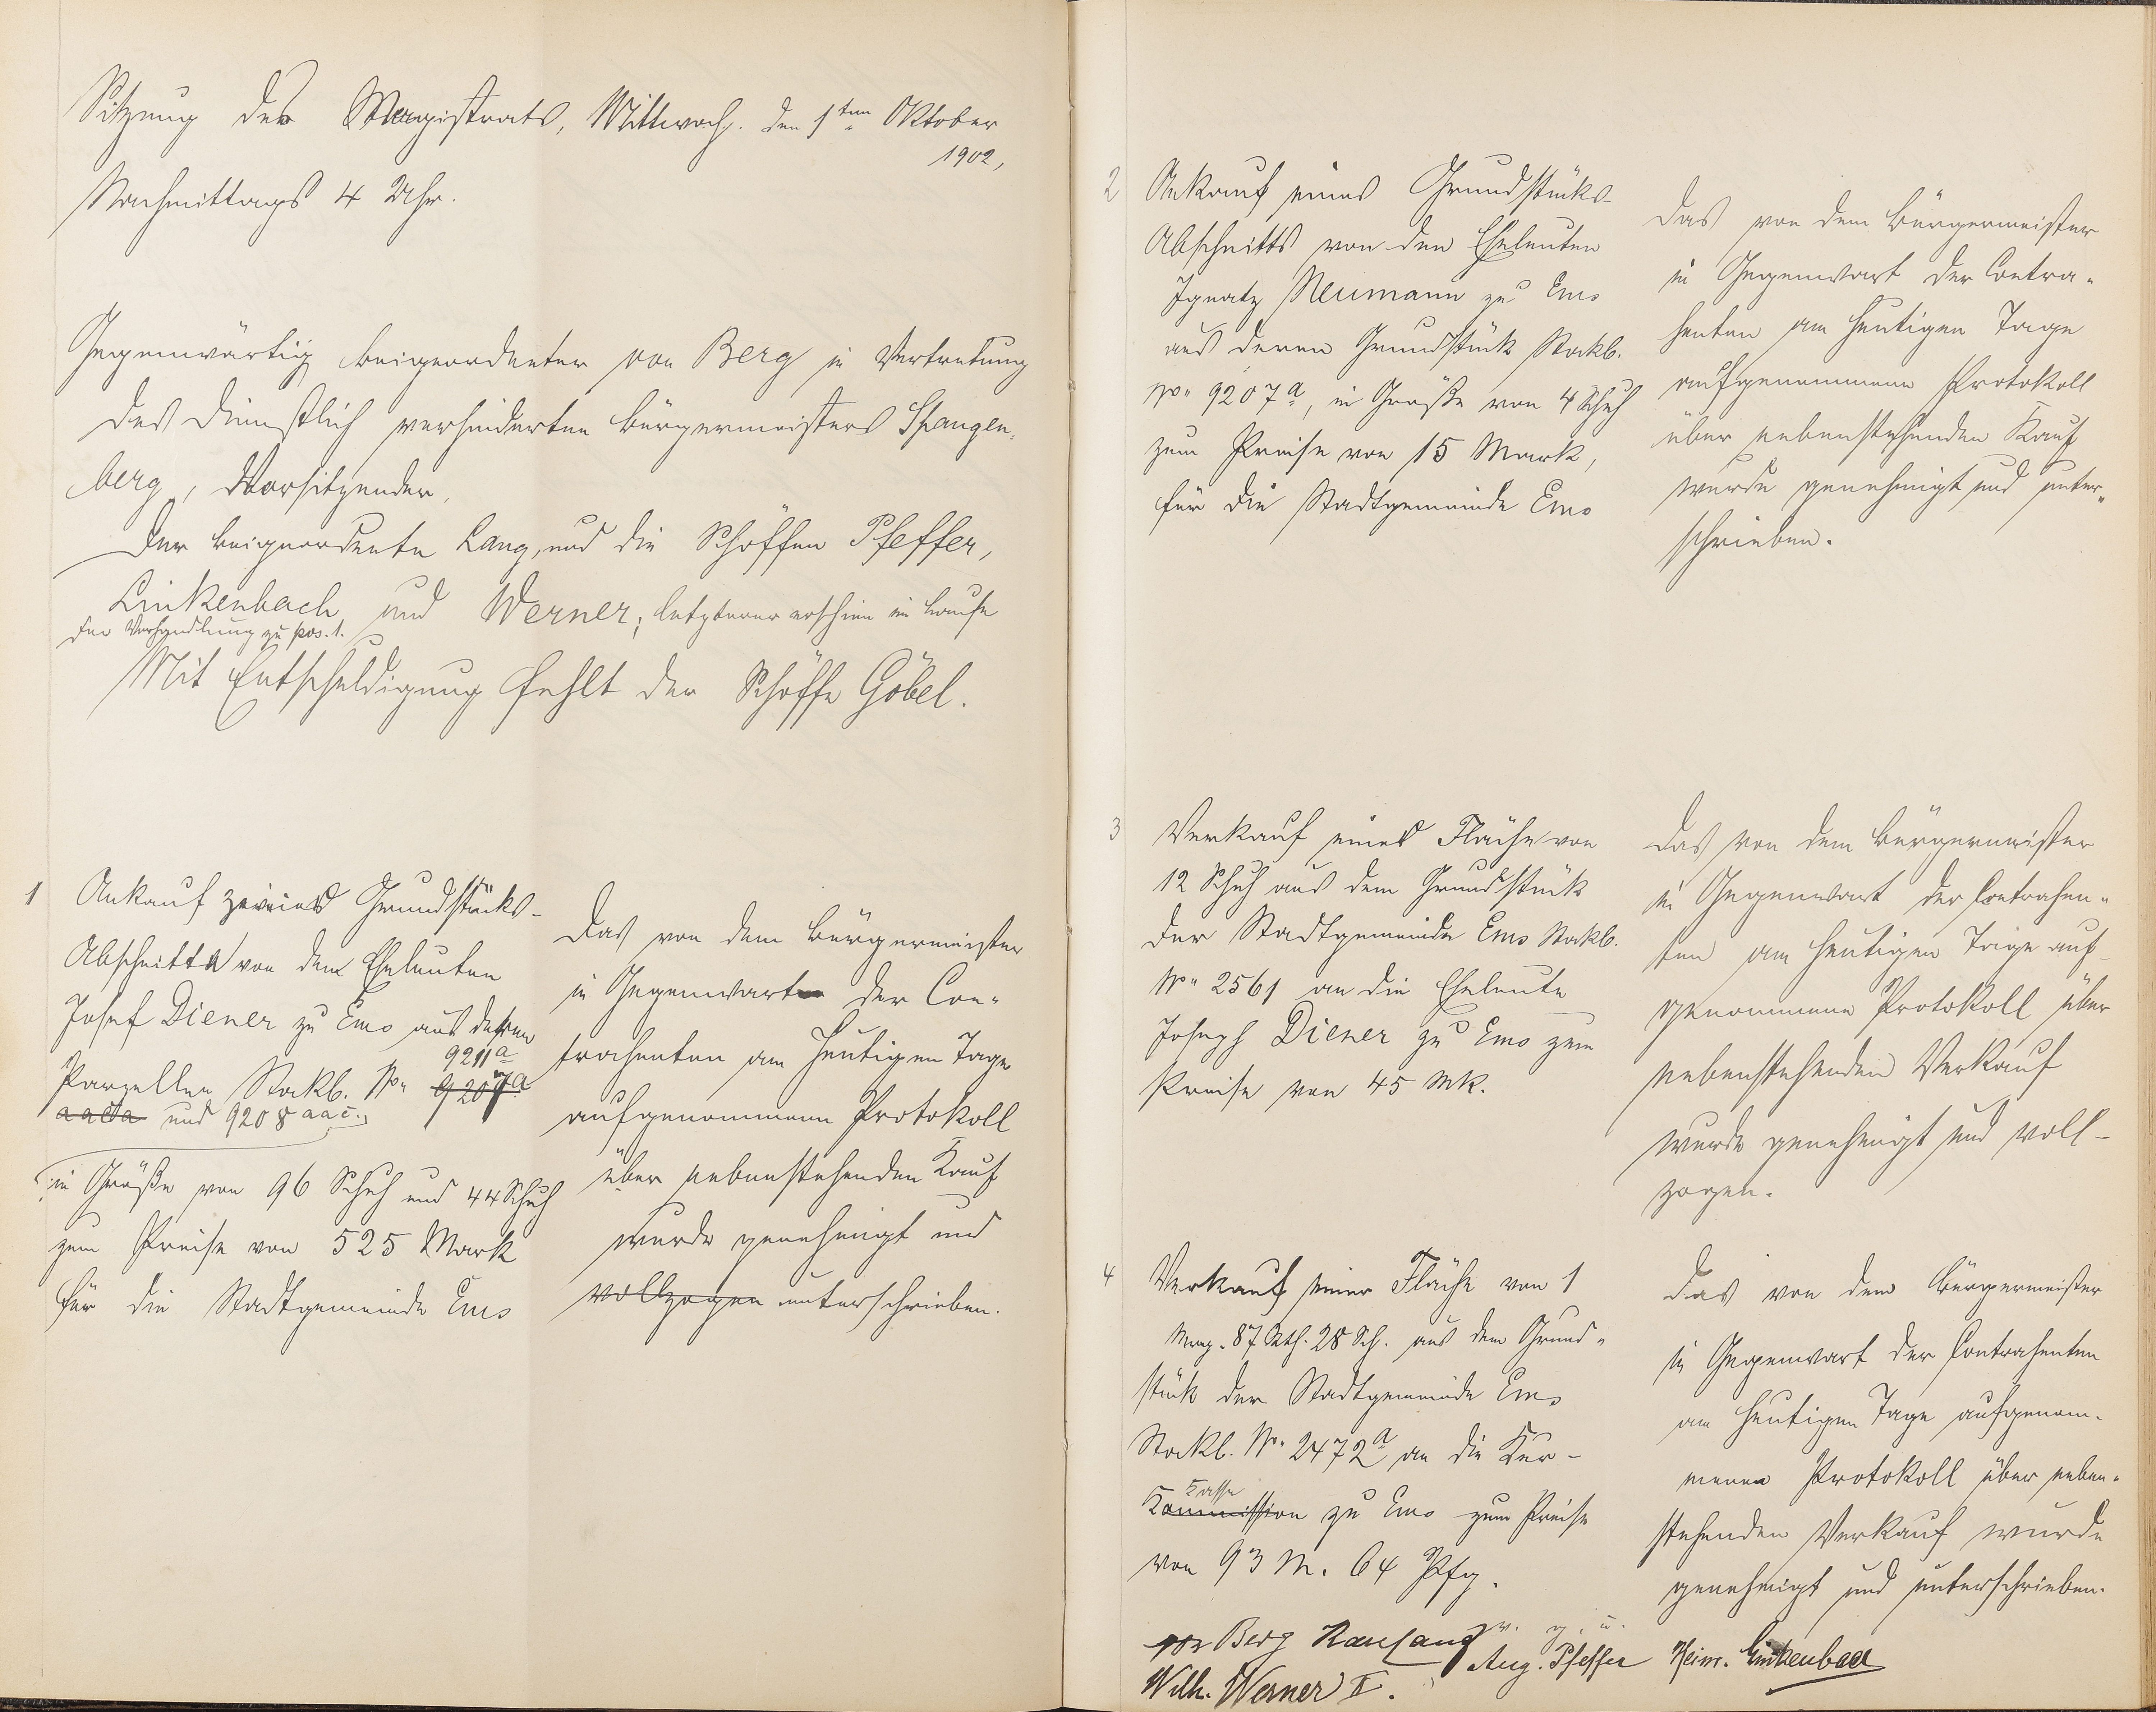 Sitzung des Magistrats, Mittwoch. den 1ten Oktober
1902,
Nachmittags 4 Uhr.
Gegenwärtig Beigeordneter von Berg in Vertretung
des dienstlich verhinderten Bürgermeisters Spangen-
berg, Vorsitzender,
der Beigeordnete Lang, und die Schöffen Pfeffer,
Linkenbach und Werner; letzterer erschien im Laufe
der Verhandlung zu pos. 1.
Mit Entschuldigung fehlt der Schöffe Göbel.
1 Ankauf zweier Grundstücks-
Abschnitte von den Eheleuten
Josef Diener zu Ems aus deren
9211a
Parzellen Stockb. No. 9207a
aacta und 9208 aac.,
in Größe von 96 Schuh und 44 Schuh
zum Preise von 525 Mark
für die Stadtgemeinde Ems
Das von dem Bürgermeister
in Gegenwart der Con-
trahenten am heutigen Tage
aufgenommene Protokoll
über nebenstehenden Kauf
wurde genehmigt und
vollzogen unterschrieben.
2 Ankauf eines Grundstücks-
Abschnitts von den Eheleuten
Ignatz Neumann zu Ems
aus deren Grundstück Stockb.
No. 9207a, in Größe von 4 Schuh
zum Preise von 15 Mark,
für die Stadtgemeinde Ems
Das von dem Bürgermeister
in Gegenwart der Contra-
henten am heutigen Tage
aufgenommene Protokoll
über nebenstehenden Kauf
wurde genehmigt und unter-
schrieben.
3 Verkauf einer Fläche von
12 Schuh aus dem Grundstück
der Stadtgemeinde Ems Stockb.
No. 2561 an die Eheleute
Joseph Diener zu Ems zum
Preise von 45 Mk.
Das von dem Bürgermeister
in Gegenwart der Contrahen-
ten am heutigen Tage auf-
genommene Protokoll über
nebenstehenden Verkauf
wurde genehmigt und voll-
zogen.
4 Verkauf einer Fläche von 1
Mrg. 87 Rth. 28 Sch. aus dem Grund-
stück der Stadtgemeinde Ems
Stockb. No. 2472a an die Kur-
Kasse
Kommission zu Ems zum Preise
von 93 M. 64 Pfg.
Das von dem Bürgermeister
in Gegenwart der Contrahenten
am heutigen Tage aufgenom-
mene Protokoll über neben-
stehenden Verkauf wurde
genehmigt und unterschrieben.
v. g. u.
von Berg Aug. Pfeffer Heinr. Linkenbach
Wilh. Werner II.